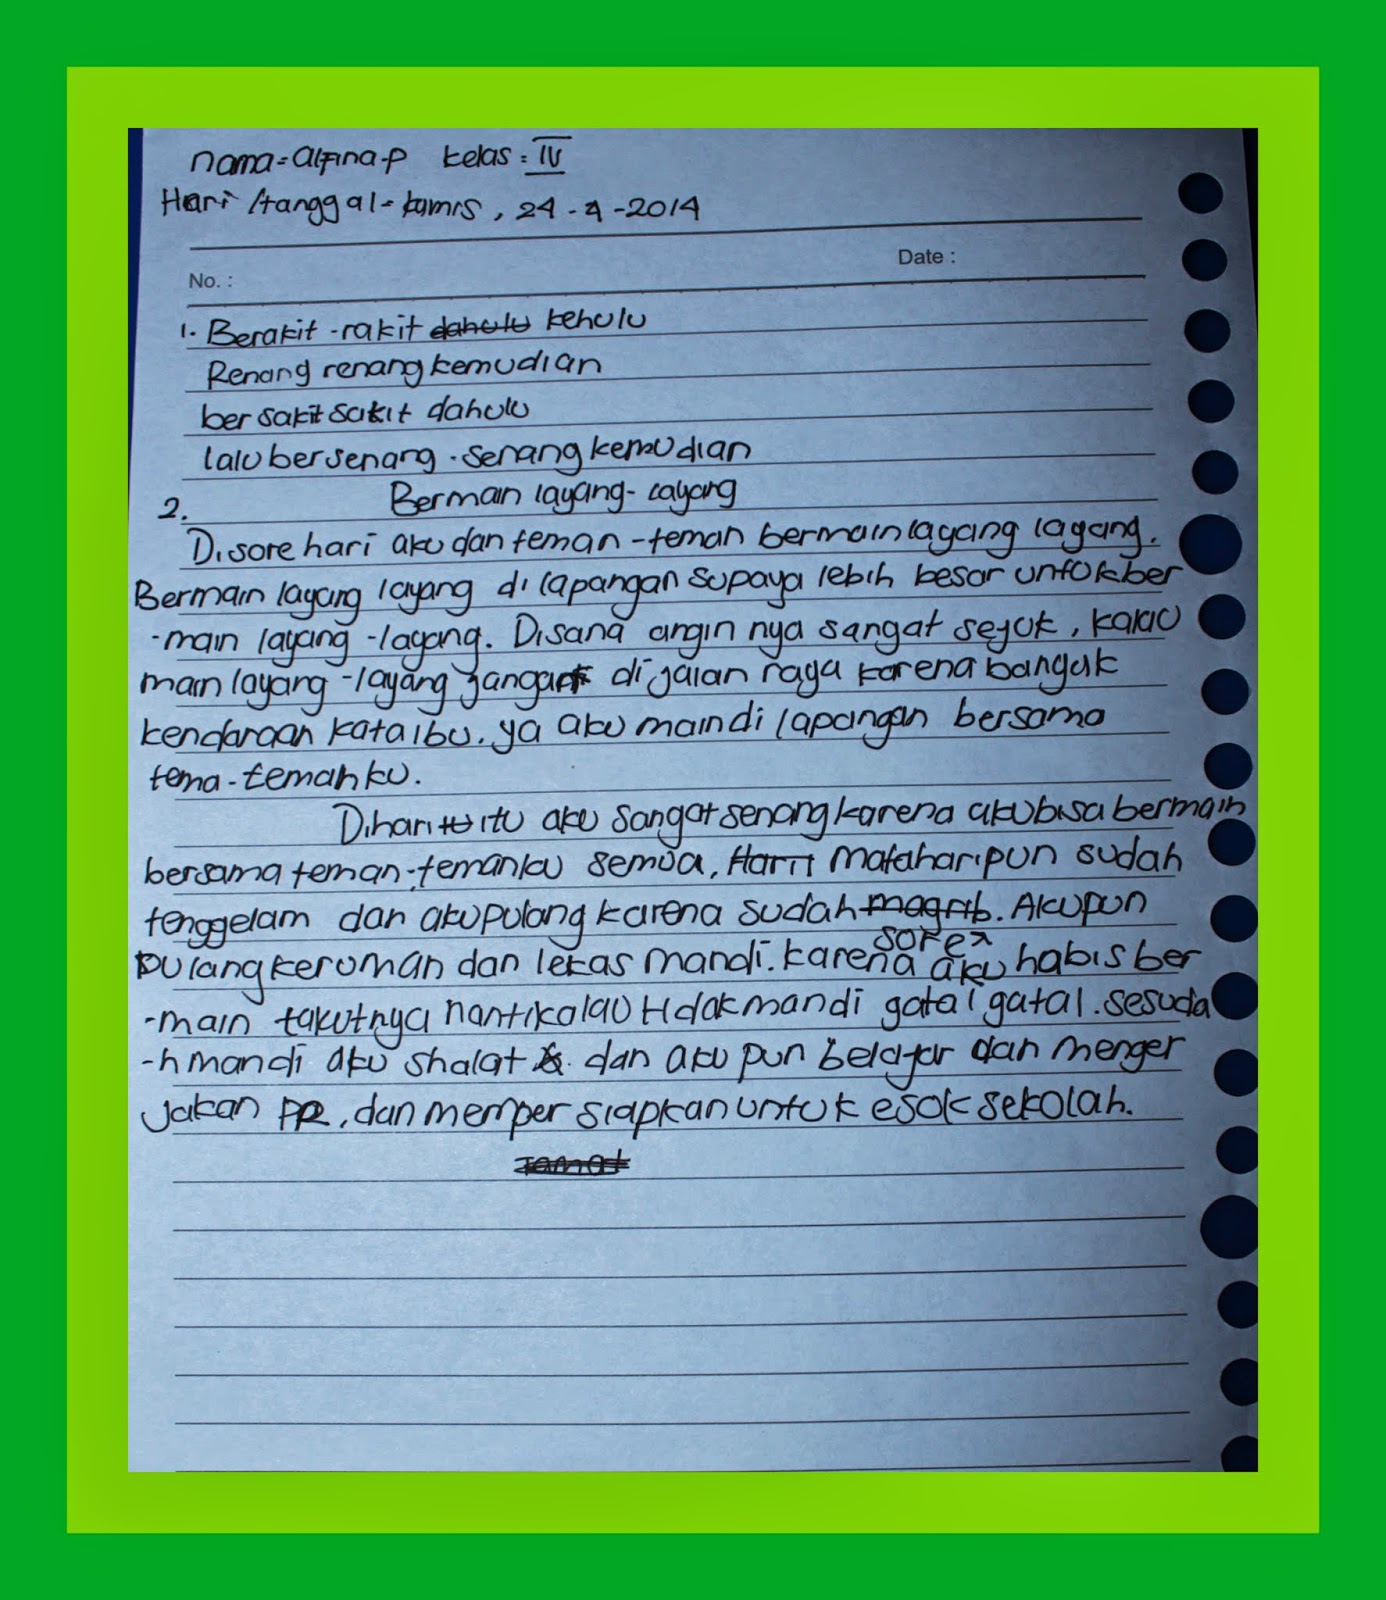 nama = alfina-p kelas : IV
Hari /tanggal - kamis, 24 - 4 - 2014
Date :
No. :
1. Berakit - rakit dahulu kehulu
Renang renang kemudian
ber sakit sakit dahulu
lalu bersenang - senang kemudian
2. Bermain layang - layang
Disore hari aku dan teman - teman bermain layang layang.
Bermain layang layang di lapangan supaya lebih besar untuk ber
-main layang - layang. Disana angin nya sangat sejuk, kalau
main layang - layang jangan di jalan raya karena banyak
kendaraan kata ibu. ya aku main di lapangan bersama
tema - temanku.
Dihari itu aku sangat senang karena aku bisa bermain
bersama teman - temanku semua. Hari matahari pun sudah
tenggelam dan aku pulang karena sudah magrib. Aku pun
sore
pulang kerumah dan lekas mandi. karena aku habis ber
-main takutnya nanti kalau tidak mandi gatal gatal. sesuda
-h mandi aku shalat dan aku pun belajar dan menger
jakan PR, dan memper siapkan untuk esok sekolah.
Tamat